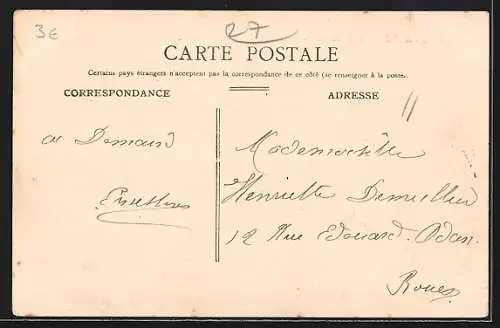 3€
27
CARTE POSTALE
Certains pays étrangers n'acceptent pas la correspondance de ce côté (se renseigner à la poste.
CORRESPONDANCE
ADRESSE
a Demain
Mademoiselle
Henriette
12 Rue Edouard Adam
Rouen